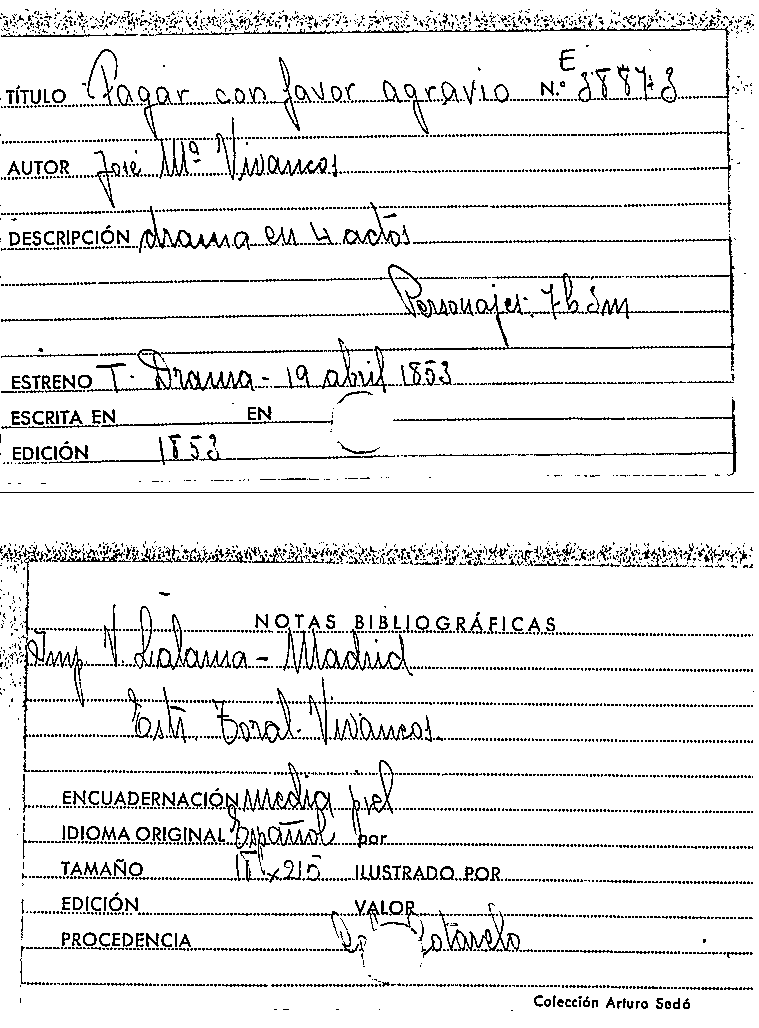 TÍTULO Pagar con favor agravio N.º E
AUTOR José Mª Vivancos
DESCRIPCIÓN drama en 4 actos
Personajes: 7h 3m
ESTRENO T. Drama - 19 abril 1853
ESCRITA EN EN
EDICIÓN 1853
NOTAS BIBLIOGRÁFICAS
Imp V. Lalama - Madrid
Estr. Toral - Vivancos.
ENCUADERNACIÓN media piel
IDIOMA ORIGINAL Español por
TAMAÑO x215 ILUSTRADO POR
EDICIÓN VALOR
PROCEDENCIA Cotarelo
Colección Arturo Sedó